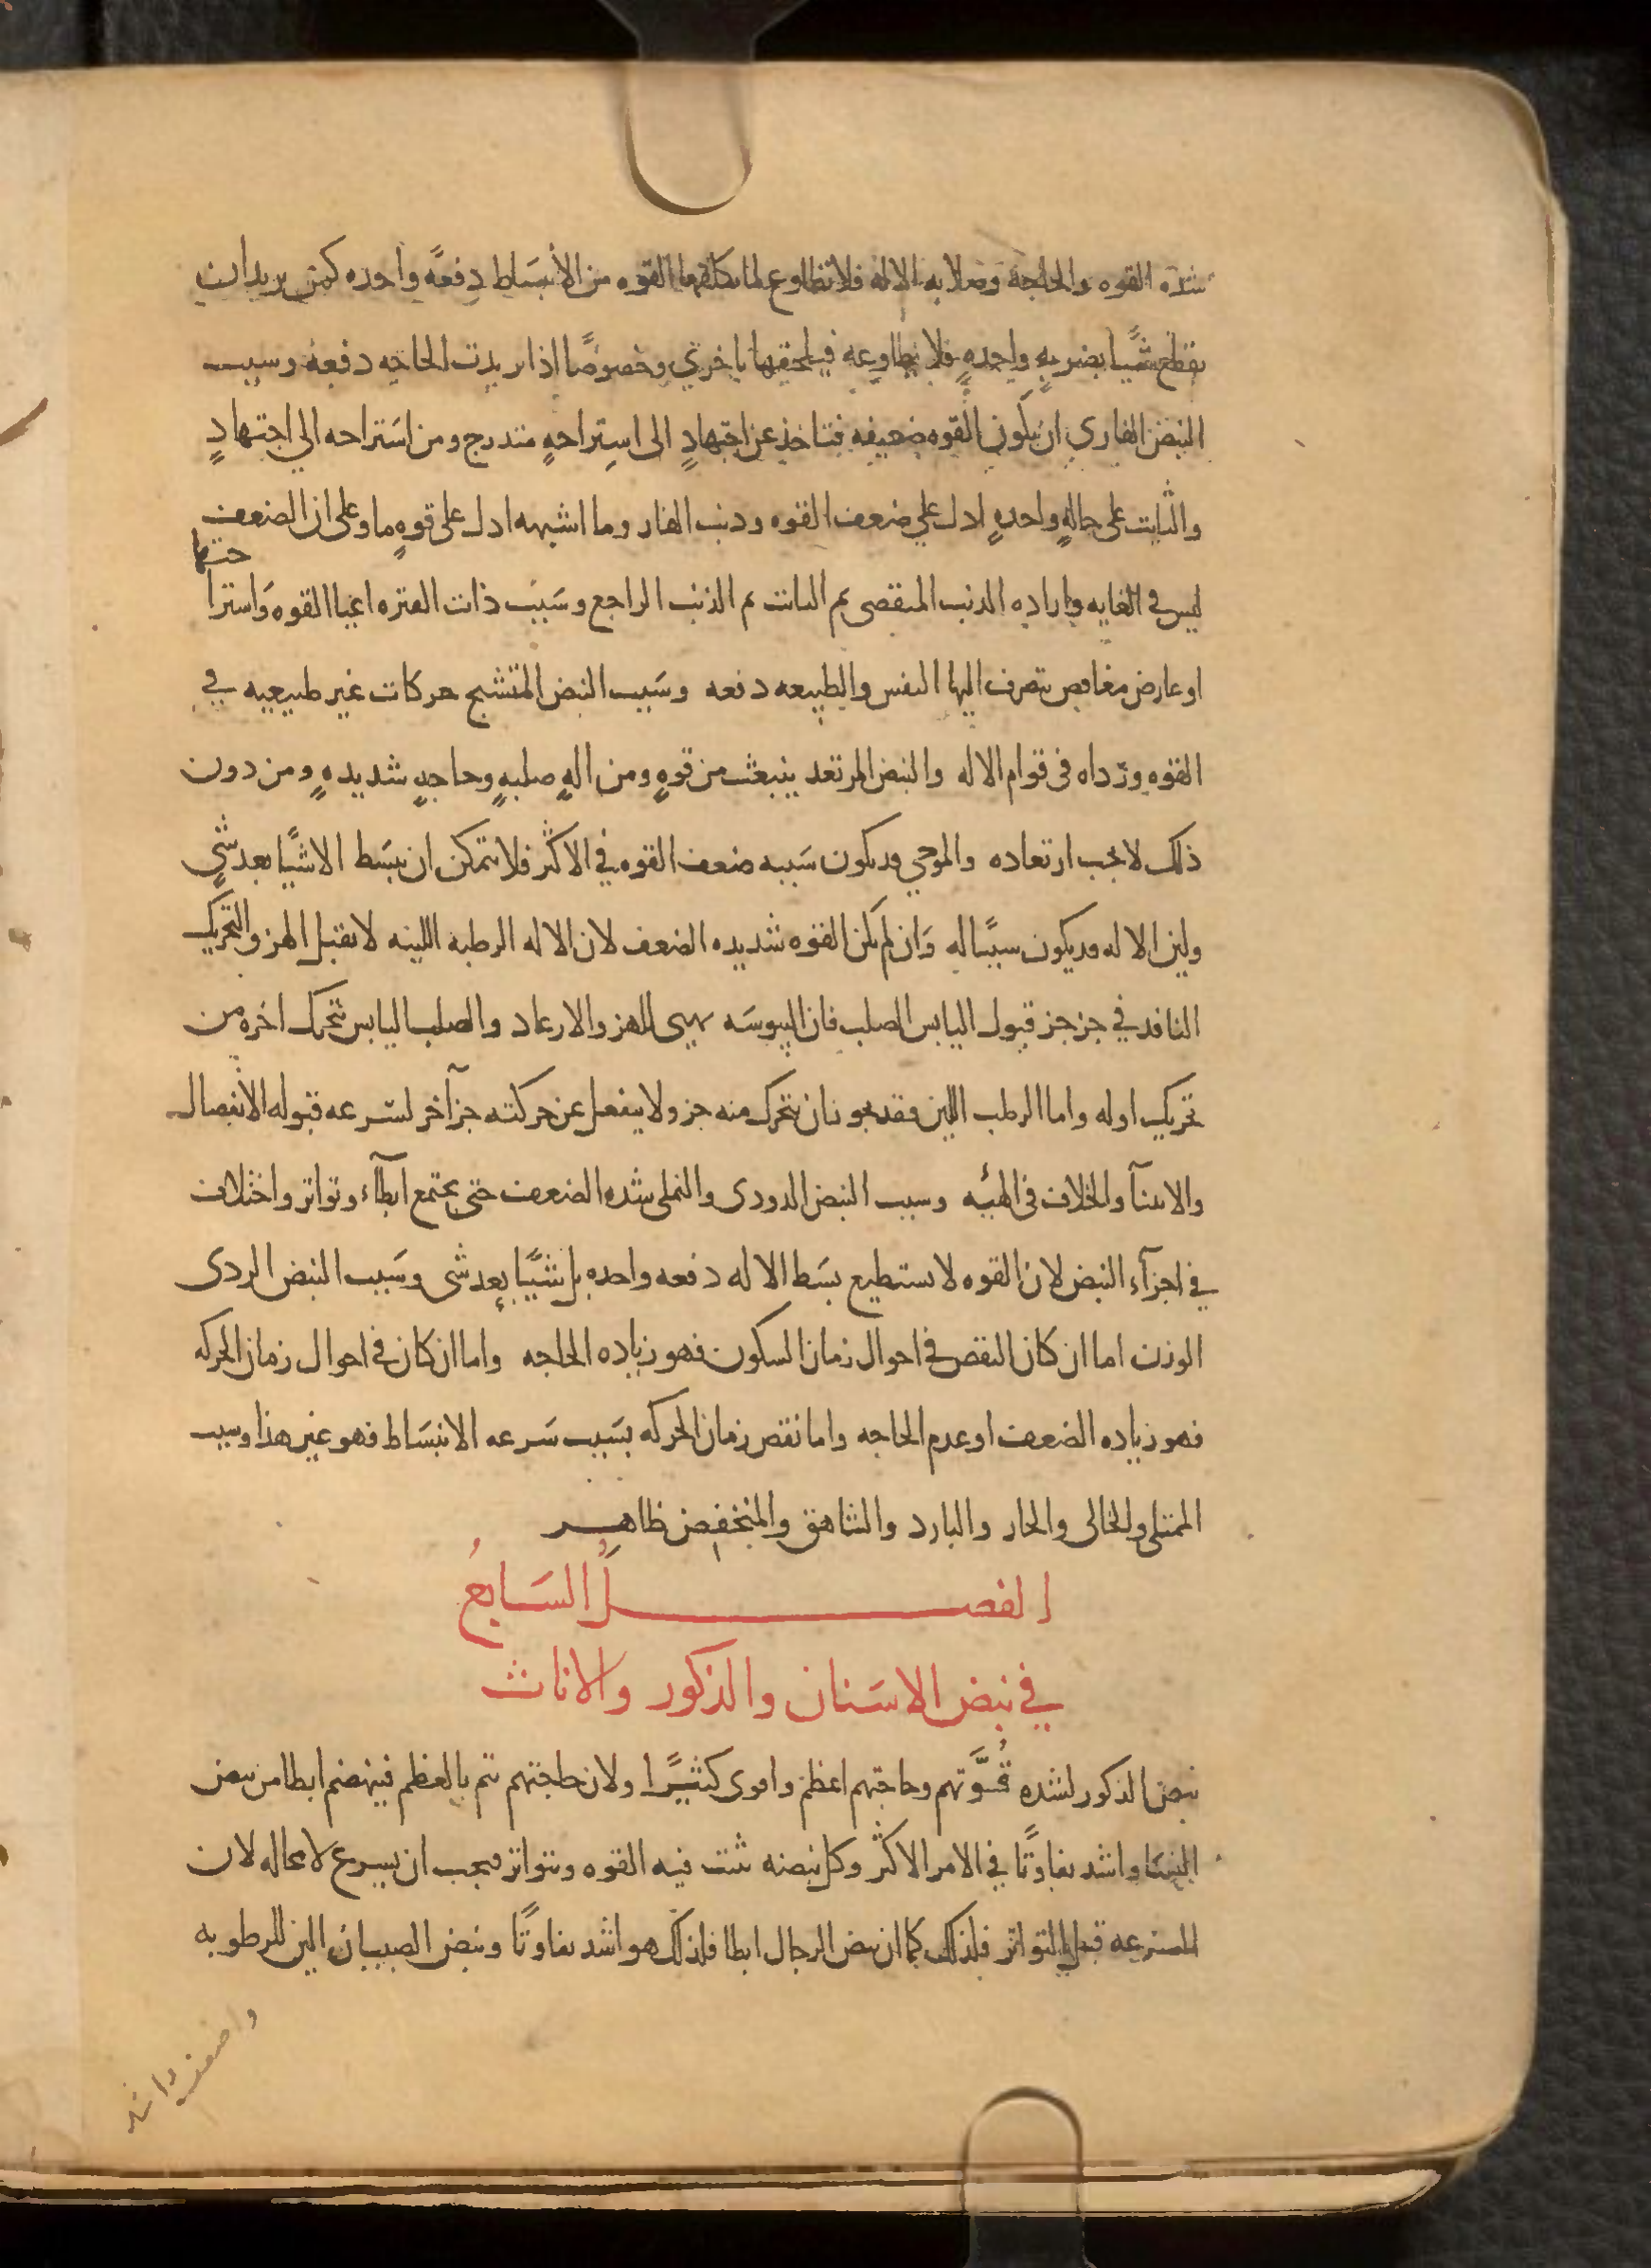 شدة القوه والحاجة وصلابه الاله فلا تطاوع لما تكلفها القوه من الأنبسَاط دفعةً واحده كمن يريد ان
يقطع شيًا بضربهٍ واحدهٍ فلا يطاوعه فيلحقها باخرى وخصوصًا اذا تزيدت الحاجه دفعة وسبب
النبض الفارى ان يكون القوه ضعيفه فتاخذ عن اجتهادٍ الى استراحهٍ متدرج ومن استراحه الي اجتهادٍ
والثابت على حالهٍ واحدهٍ ادل علي ضعف القوه وذنب الفار وما اشبهه ادل على قوهٍ ما وعلى ان الضعف
ليس في الغايه واراده الذنب المنقضى ثم الثابت ثم الذنب الراجع وسَبَب ذات الفتره اعيا القوه وَاسترا
حتها
او عارض مغافص يتصرف اليها النفس والطبيعه دفعه وسَبب النبض المتشنج حركات غير طبيعيه في
القوه وردآه فى قوام الاله والنبض المرتعد ينبعث من قوهٍ ومن الهٍ صلبهٍ وحاجهٍ شديدهٍ ومن دون
ذلك لا يجب ارتعاده والموجي قد يكون سَببه ضعف القوه في الاكثر فلا يتمكن ان يبسَط الا شيًا بعد شيٍ
ولين الاله قد يكون سببًا له وَان لم تكن القوه شديده الضعف لان الاله الرطبه اللينه لا تقبل الهز والتحريك
النافد في جز جز قبول اليابس الصلب فان اليبوسَه تهيى للهز والارعاد والصلب اليابس يتحرك اخره من
تحريك اوله واما الرطب اللين فقد يجوز ان يتحرك منه جز ولا ينفعل عن حركته جزآخر لسَرعه قبوله الانفصال
والانثنآ والخلاف فى الهيئه وسبب النبض الدودى والنملى شده الضعف حتى يجتمع ابطآء وتواتر واختلاف
في اجزآء النبض لان القوه لا تستطيع بسَط الاله دفعه واحده بل شيًا بعد شى وسَبب النبض الردى
الوزن اما ان كان النقص في احوال زمان السكون فهو زياده الحاجه واما ان كان في احوال زمان الحركه
فهو زياده الضعف او عدم الحاجه واما نقص زمان الحركه بسَبب سَرعه الانبسَاط فهو غير هذا وسبب
الممتلى والخالى والحار والبارد والشاهق والمنخفض ظاهر
الفصل السَابعُ
في نبض الاسَنان والذكور والاناث
نبض الذكور لشده قُوَّتهم وحاجتهم اعظم واقوى كثيرًا ولان حاجتهم تتم بالعظم فنبضهم ابطا من نبض
النسَا واشد تفاوتًا في الامر الاكثر وكل نبضه تثبت فيه القوه وتتواتر فيجب ان يسرع لا محاله لان
السرعه قبل التواتر فلذلك كما ان نبض الرجال ابطا فلذلك هو اشد تفاوتًا ونبض الصبيان الين للرطوبه
واضعف واشد